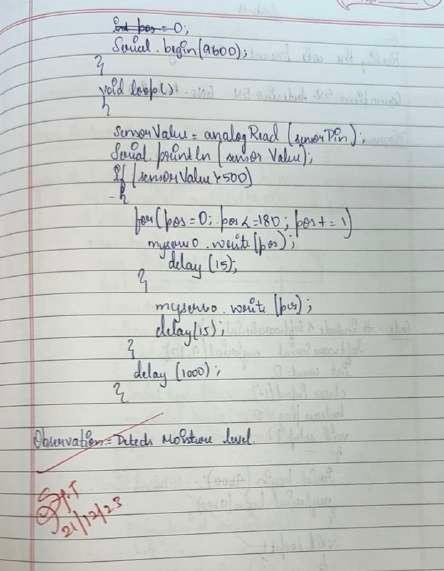 int pos = 0;
Serial.begin(9600);
}
void loop()
{
sensorValue = analogRead (sensorPin);
Serial.println (sensor Value);
If (sensorValue > 500)
{
for(pos = 0; pos < = 180; pos + = 1)
myservo.write (pos);
delay (15);
}
myservo.write (pos);
delay(15);
}
delay (1000);
}
Observation:- Detects Moisture level.
21/12/23